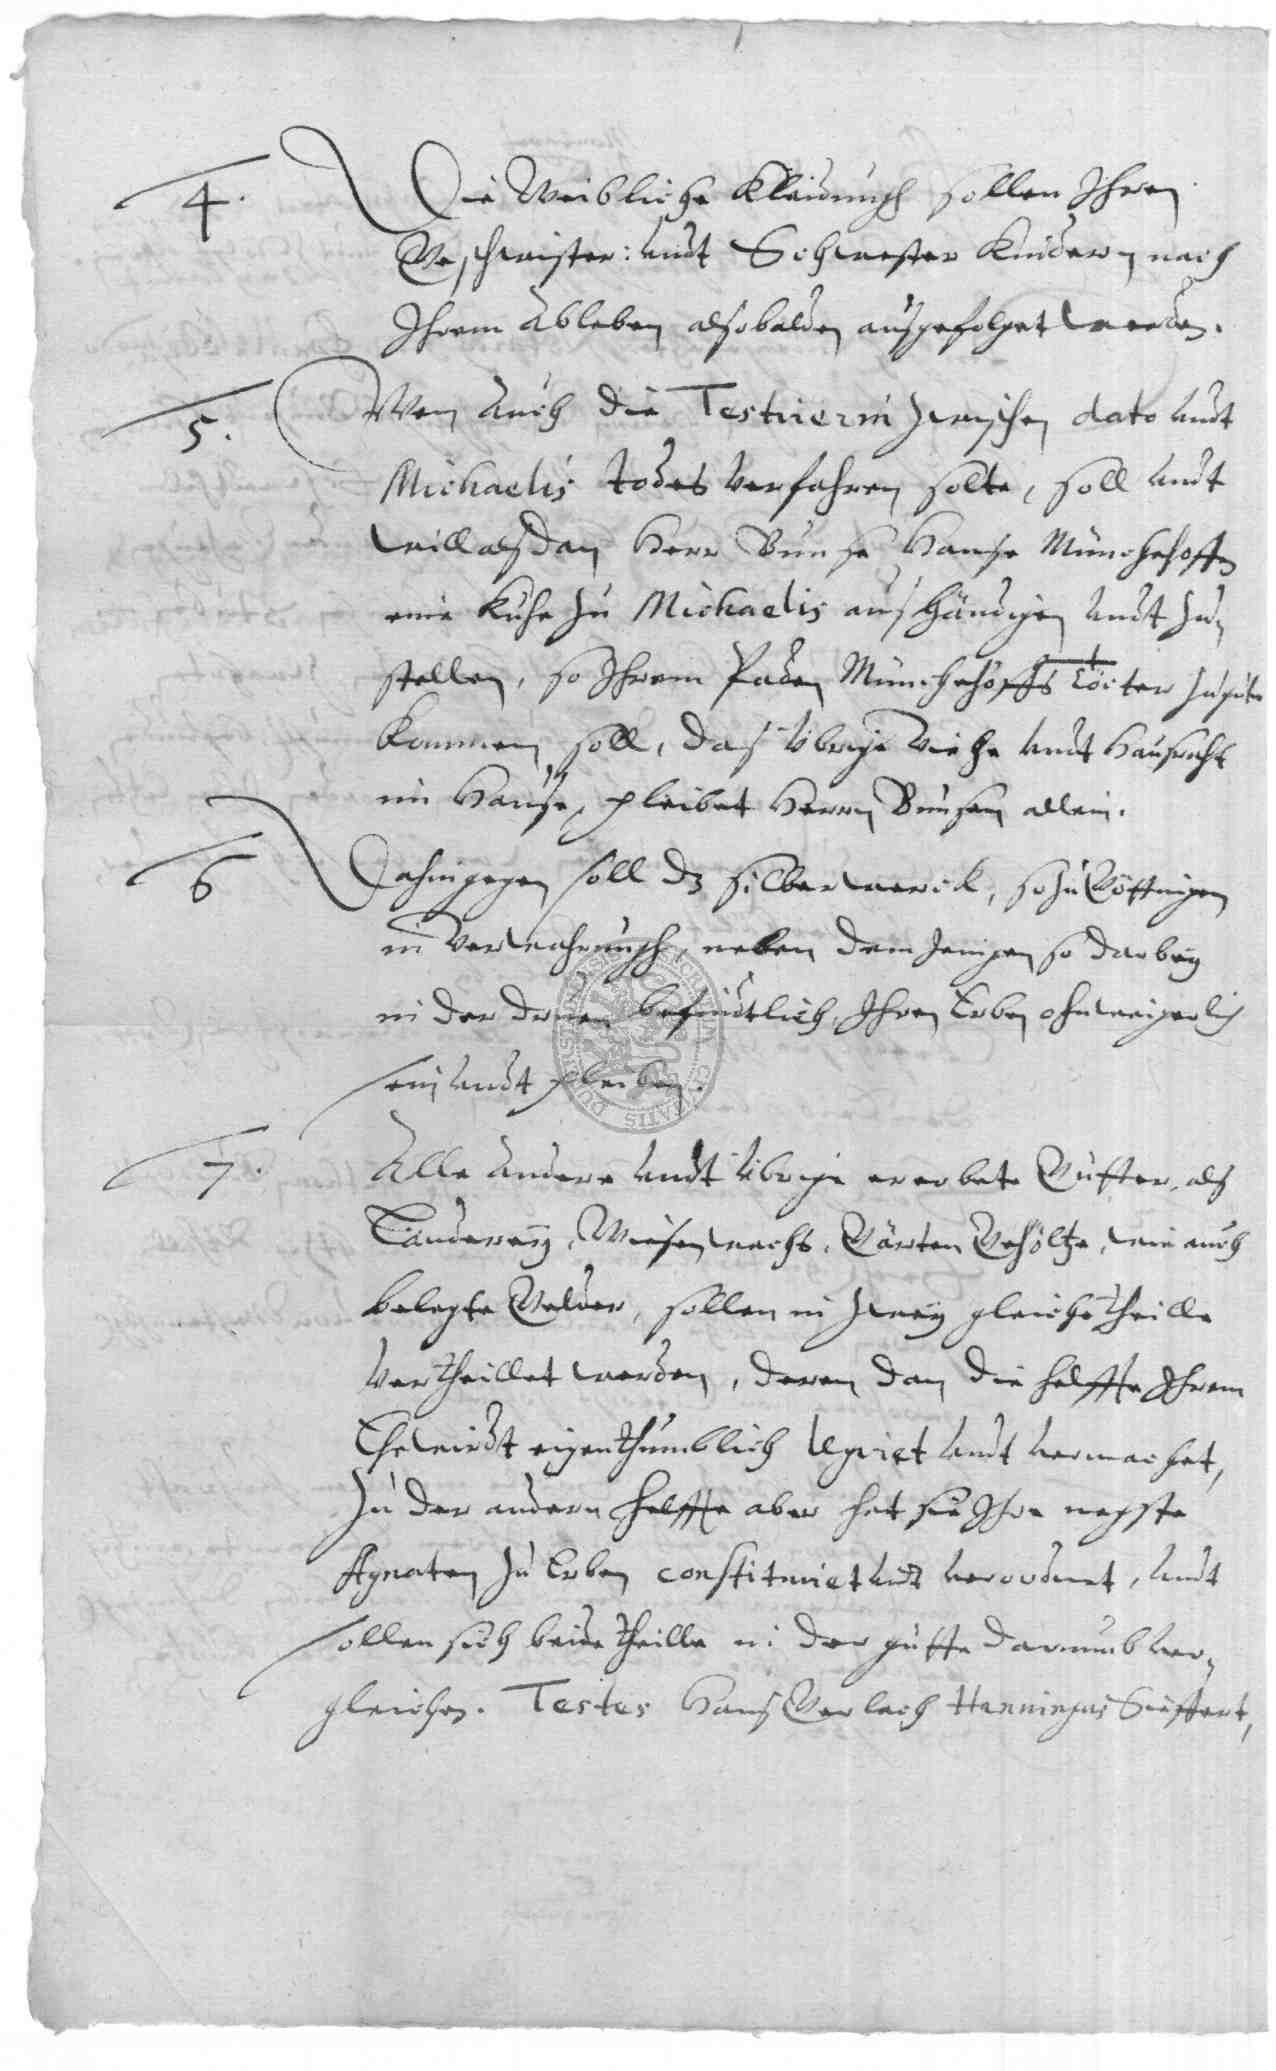 4. Die Weibliche Kleidungh sollen Ihren
Geschwister: undt Schwester Kindern nach
Ihrem Ableben alsobalden ausgefolget werden.
5. Wen auch die Testirerin zwischen dato undt
Michaelis todes verfahren solte, soll undt
will alßdan Herr Bunse Hanse Münchehoff
eine Kuhe zu Michaelis außhändigen undt zu,
stellen, so Ihrem Paden Münchehoffs Tochter zu gute
kommen soll, daß übrige Viehe undt Haußraht
im Hause, pleibet Herrn Bunsen allein.
6 Dahingegen soll dz silberwerck, so zu Göttingen
in Verwahrungh, neben dem Jenigen so darbey
in der befindtlich, Ihren Erben ohnweigerlich
sein undt pleiben.
7. Alle andere undt übrige ererbete Gütter, als
Länderey, Wiesenwachs, Gärten Gehöltze, wie auch
belegte Gelder, sollen in zwey gleiche theille
vertheillet werden, deren dan die helffte Ihrem
Ehewirdt eigenthumblich legiret undt vermachet,
Zu der andern helffte aber hat sie Ihre negste
Agnaten zu Erben constituiret undt verordnet, undt
sollen sich beide theille in der gütte darumb ver,
gleichen. Testes Hanß Gerlach Henningus Sieffert,